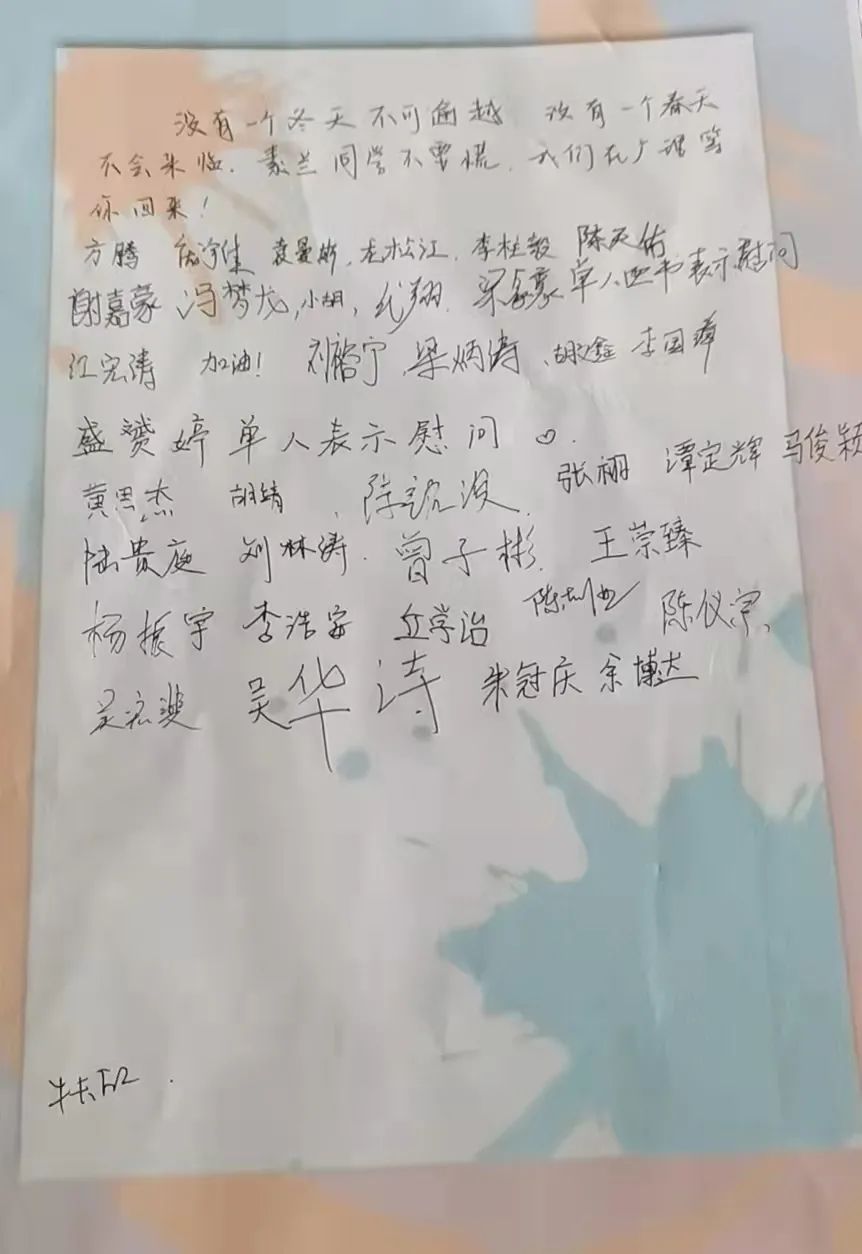 没有一个冬天不可逾越 没有一个春天
不会来临. 素兰同学不要慌. 我们在广谱等
你回来!
方腾 袁曼娇, 龙淞江. 李杜毅 陈天佑
谢嘉蒙 冯梦龙, 小胡, 翔. 梁家豪单人 书表示慰问
江宏涛 加油! 刘裕宁, 梁炳涛 胡逸鑫 李国璋
盛赟婷单人表示慰问♡.
黄思杰 胡靖, 陈 张栩 谭定辉 马俊颖
陆贵庭 刘林涛. 曾子彬. 王荣臻
杨振宇 李浩 丘学治 陈 陈仪宗、
吴宏斐 吴华诗 朱冠庆 余博达